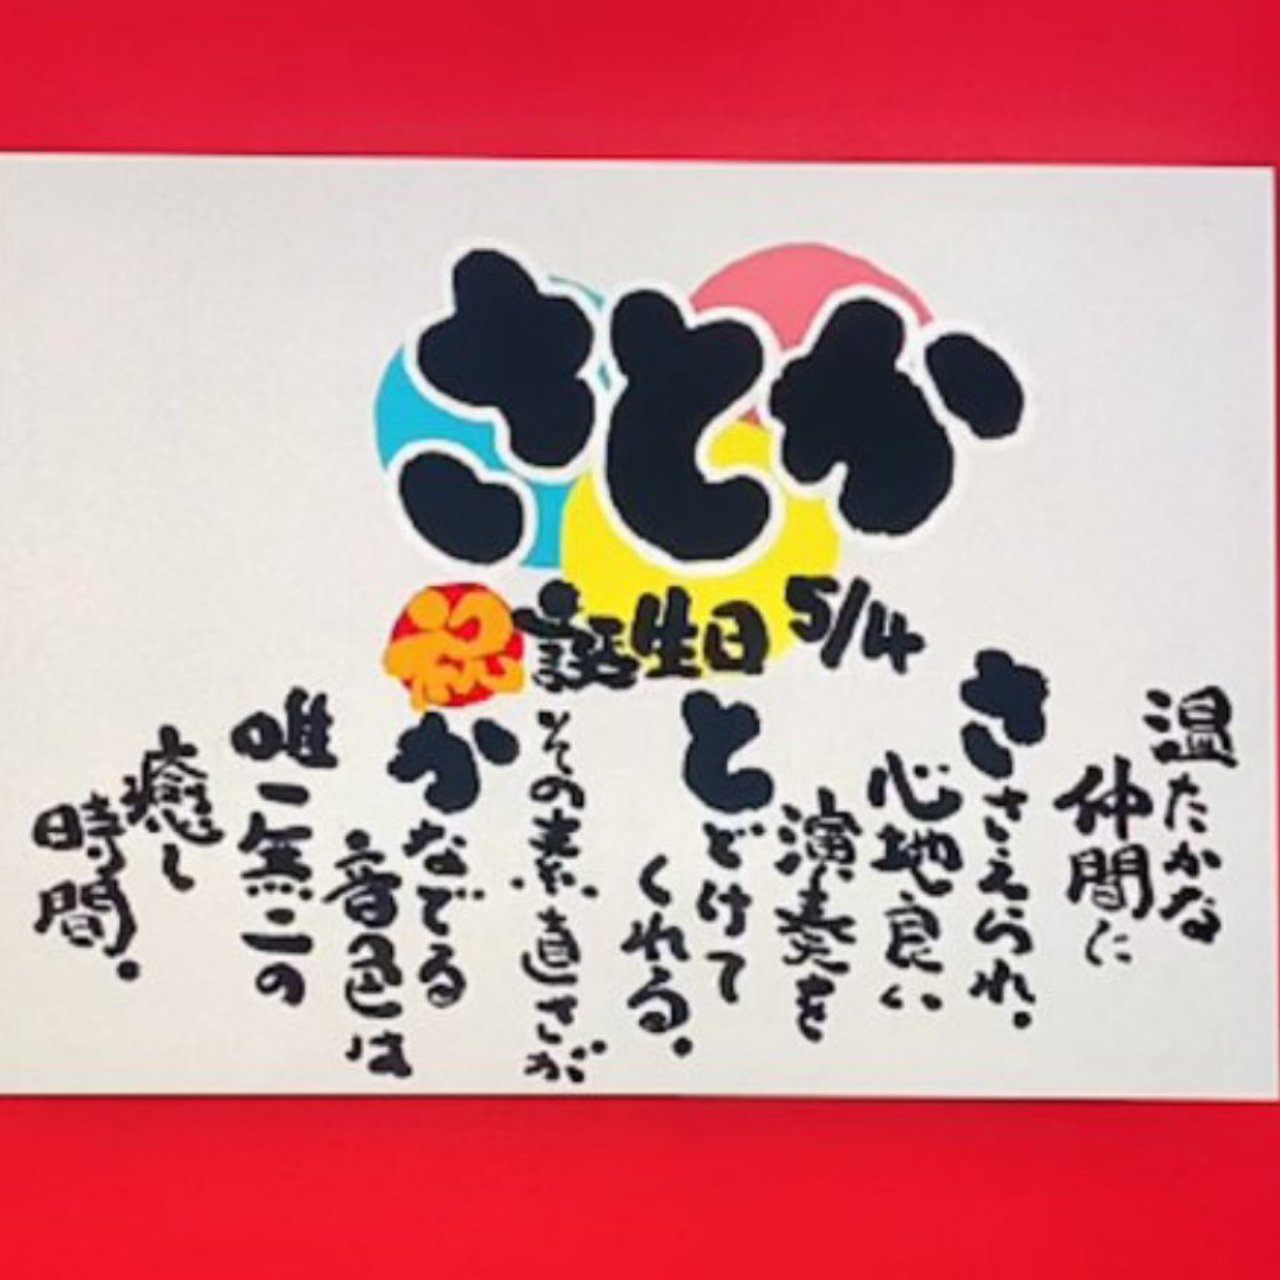 さとか
祝 誕生日 5/4
温たかな
仲間に
ささえられ。
心地良い
演奏を
とどけて
くれる。
その素直さが
かなでる
音色は
唯一無二の
癒し
時間。